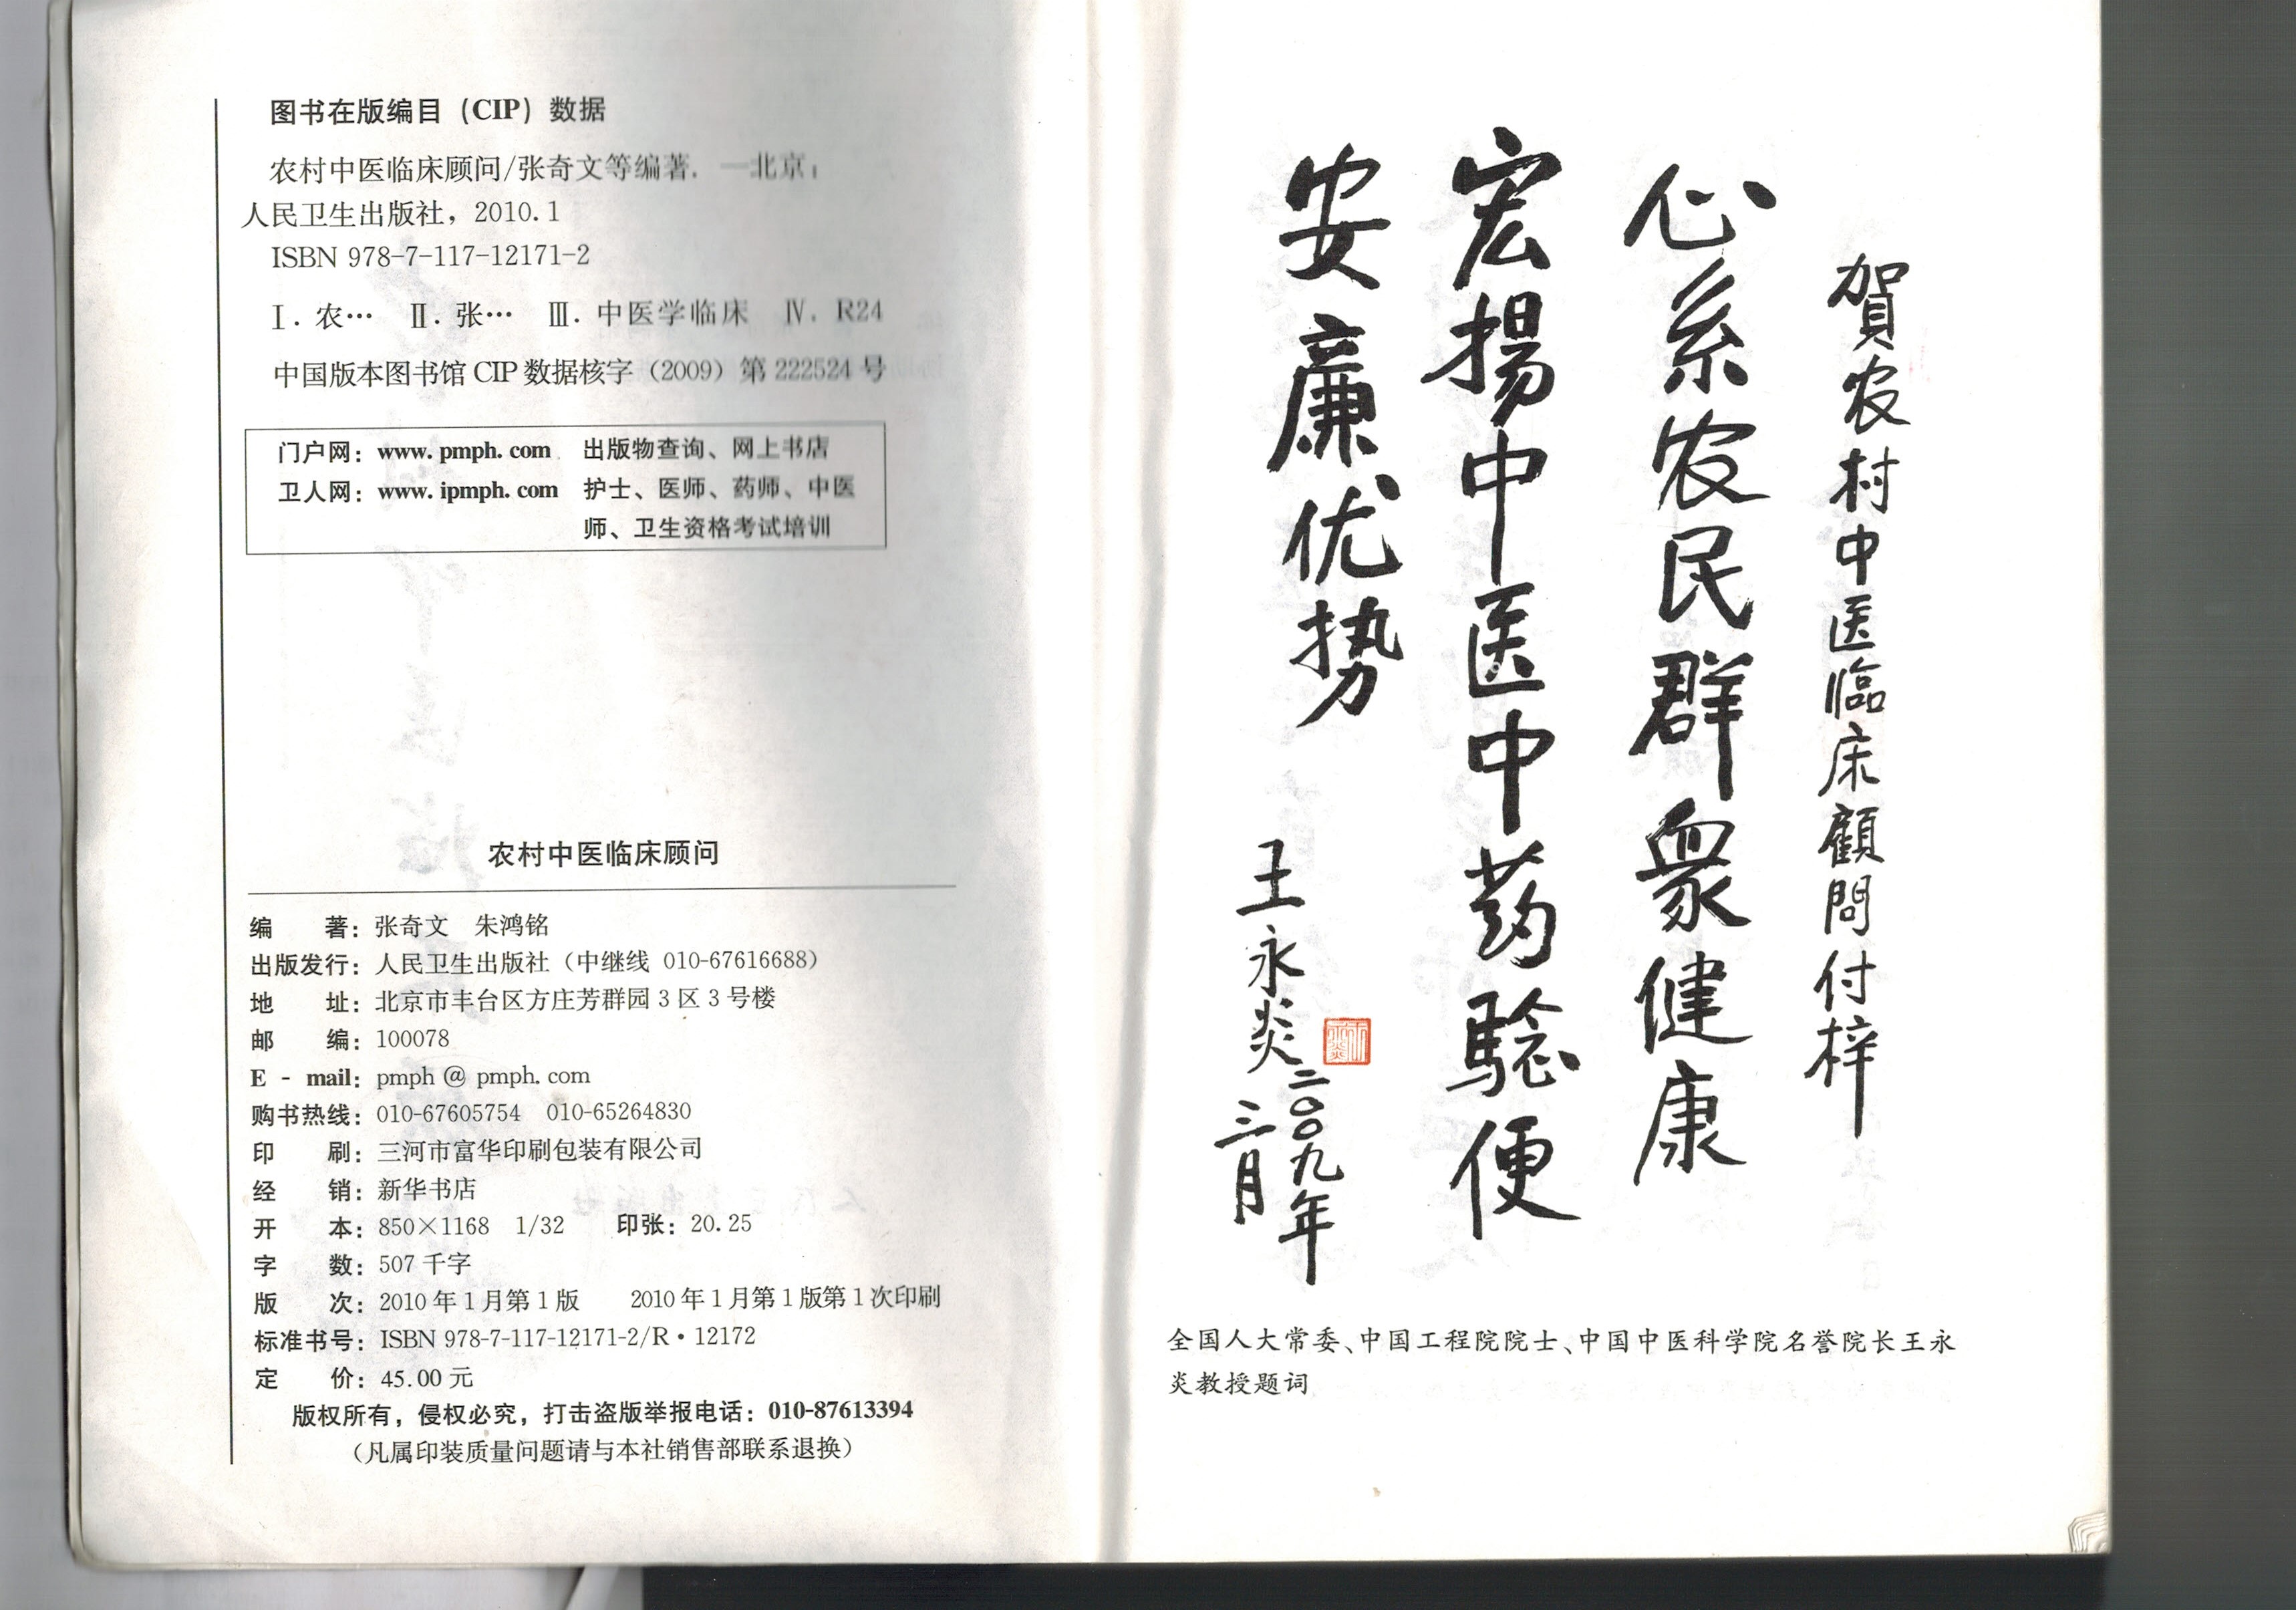 图书在版编目（CIP）数据
农村中医临床顾问/张奇文等编著. —北京:
人民卫生出版社，2010.1
ISBN 978-7-117-12171-2
Ⅰ. 农… Ⅱ. 张… Ⅲ. 中医学临床 Ⅳ. R24
中国版本图书馆 CIP 数据核字（2009）第 222524 号
门户网：www. pmph. com 出版物查询、网上书店
卫人网：www. ipmph. com 护士、医师、药师、中医
师、卫生资格考试培训
农村中医临床顾问
编 著：张奇文 朱鸿铭
出版发行：人民卫生出版社（中继线 010-67616688）
地 址：北京市丰台区方庄芳群园 3 区 3 号楼
邮 编：100078
E - mail：pmph @ pmph. com
购书热线：010-67605754 010-65264830
印 刷：三河市富华印刷包装有限公司
经 销：新华书店
开 本：850×1168 1/32 印张：20.25
字 数：507 千字
版 次：2010 年 1 月第 1 版 2010 年 1 月第 1 版第 1 次印刷
标准书号：ISBN 978-7-117-12171-2/R·12172
定 价：45.00 元
版权所有，侵权必究，打击盗版举报电话：010-87613394
（凡属印装质量问题请与本社销售部联系退换）
賀农村中医臨床顧問付梓
心系农民群衆健康
宏揚中医中药騐便
安廉优势
王永炎
二〇〇九年
三月
全国人大常委、中国工程院院士、中国中医科学院名誉院长王永
炎教授题词